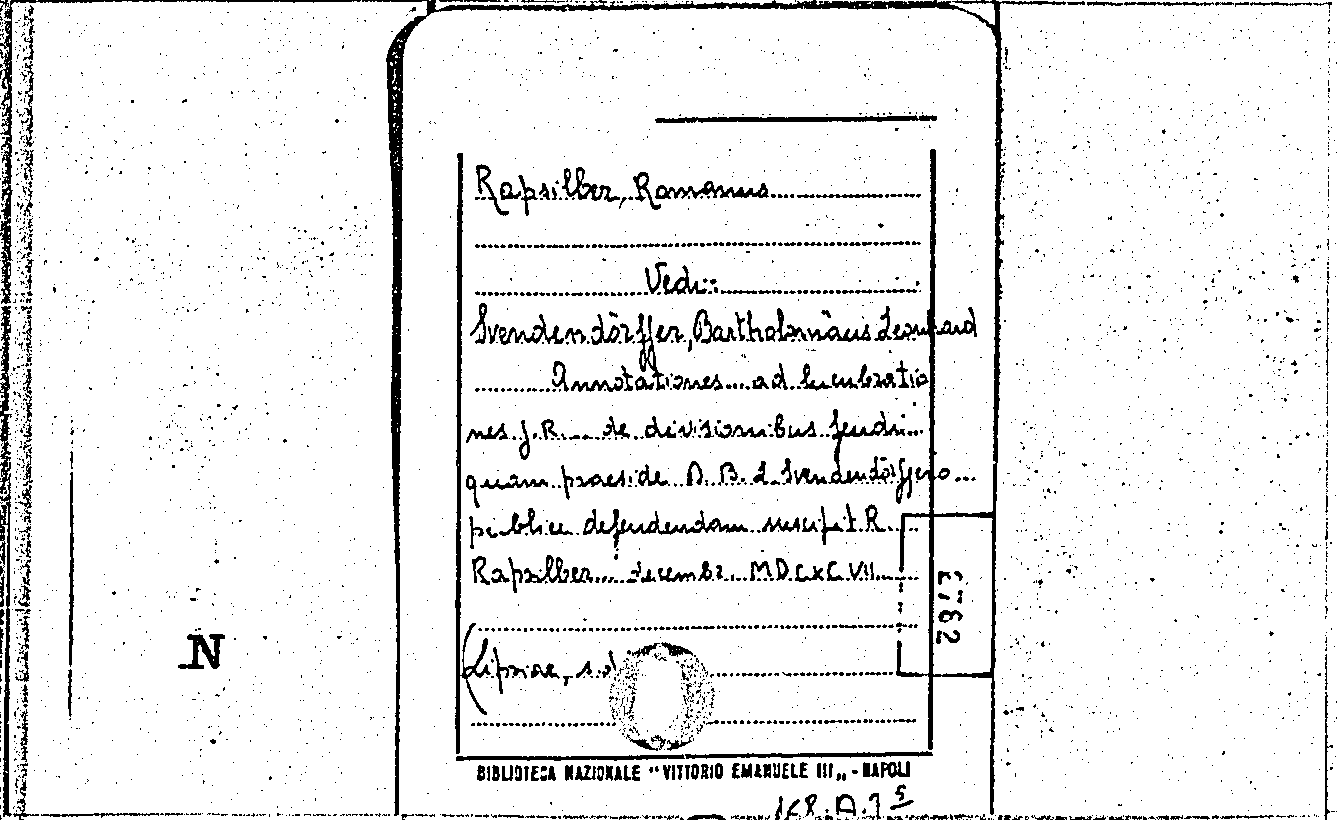 Rapsilber, Romanus
Vedi:
Svendendörffer, Bartholomäus Leonhard
Annotationes ad lucubratio
nes J. R. ... de divisionibus feudi...
quam praeside D. B. L. Svendendörffero...
publice defendendam suscipit R.
Rapsilber... decembr. MDCXCVII
(Lipsiae, s.d
2782
N
BIBLIOTECA NAZIONALE "VITTORIO EMANUELE III„ - NAPOLI
168.A.7 5